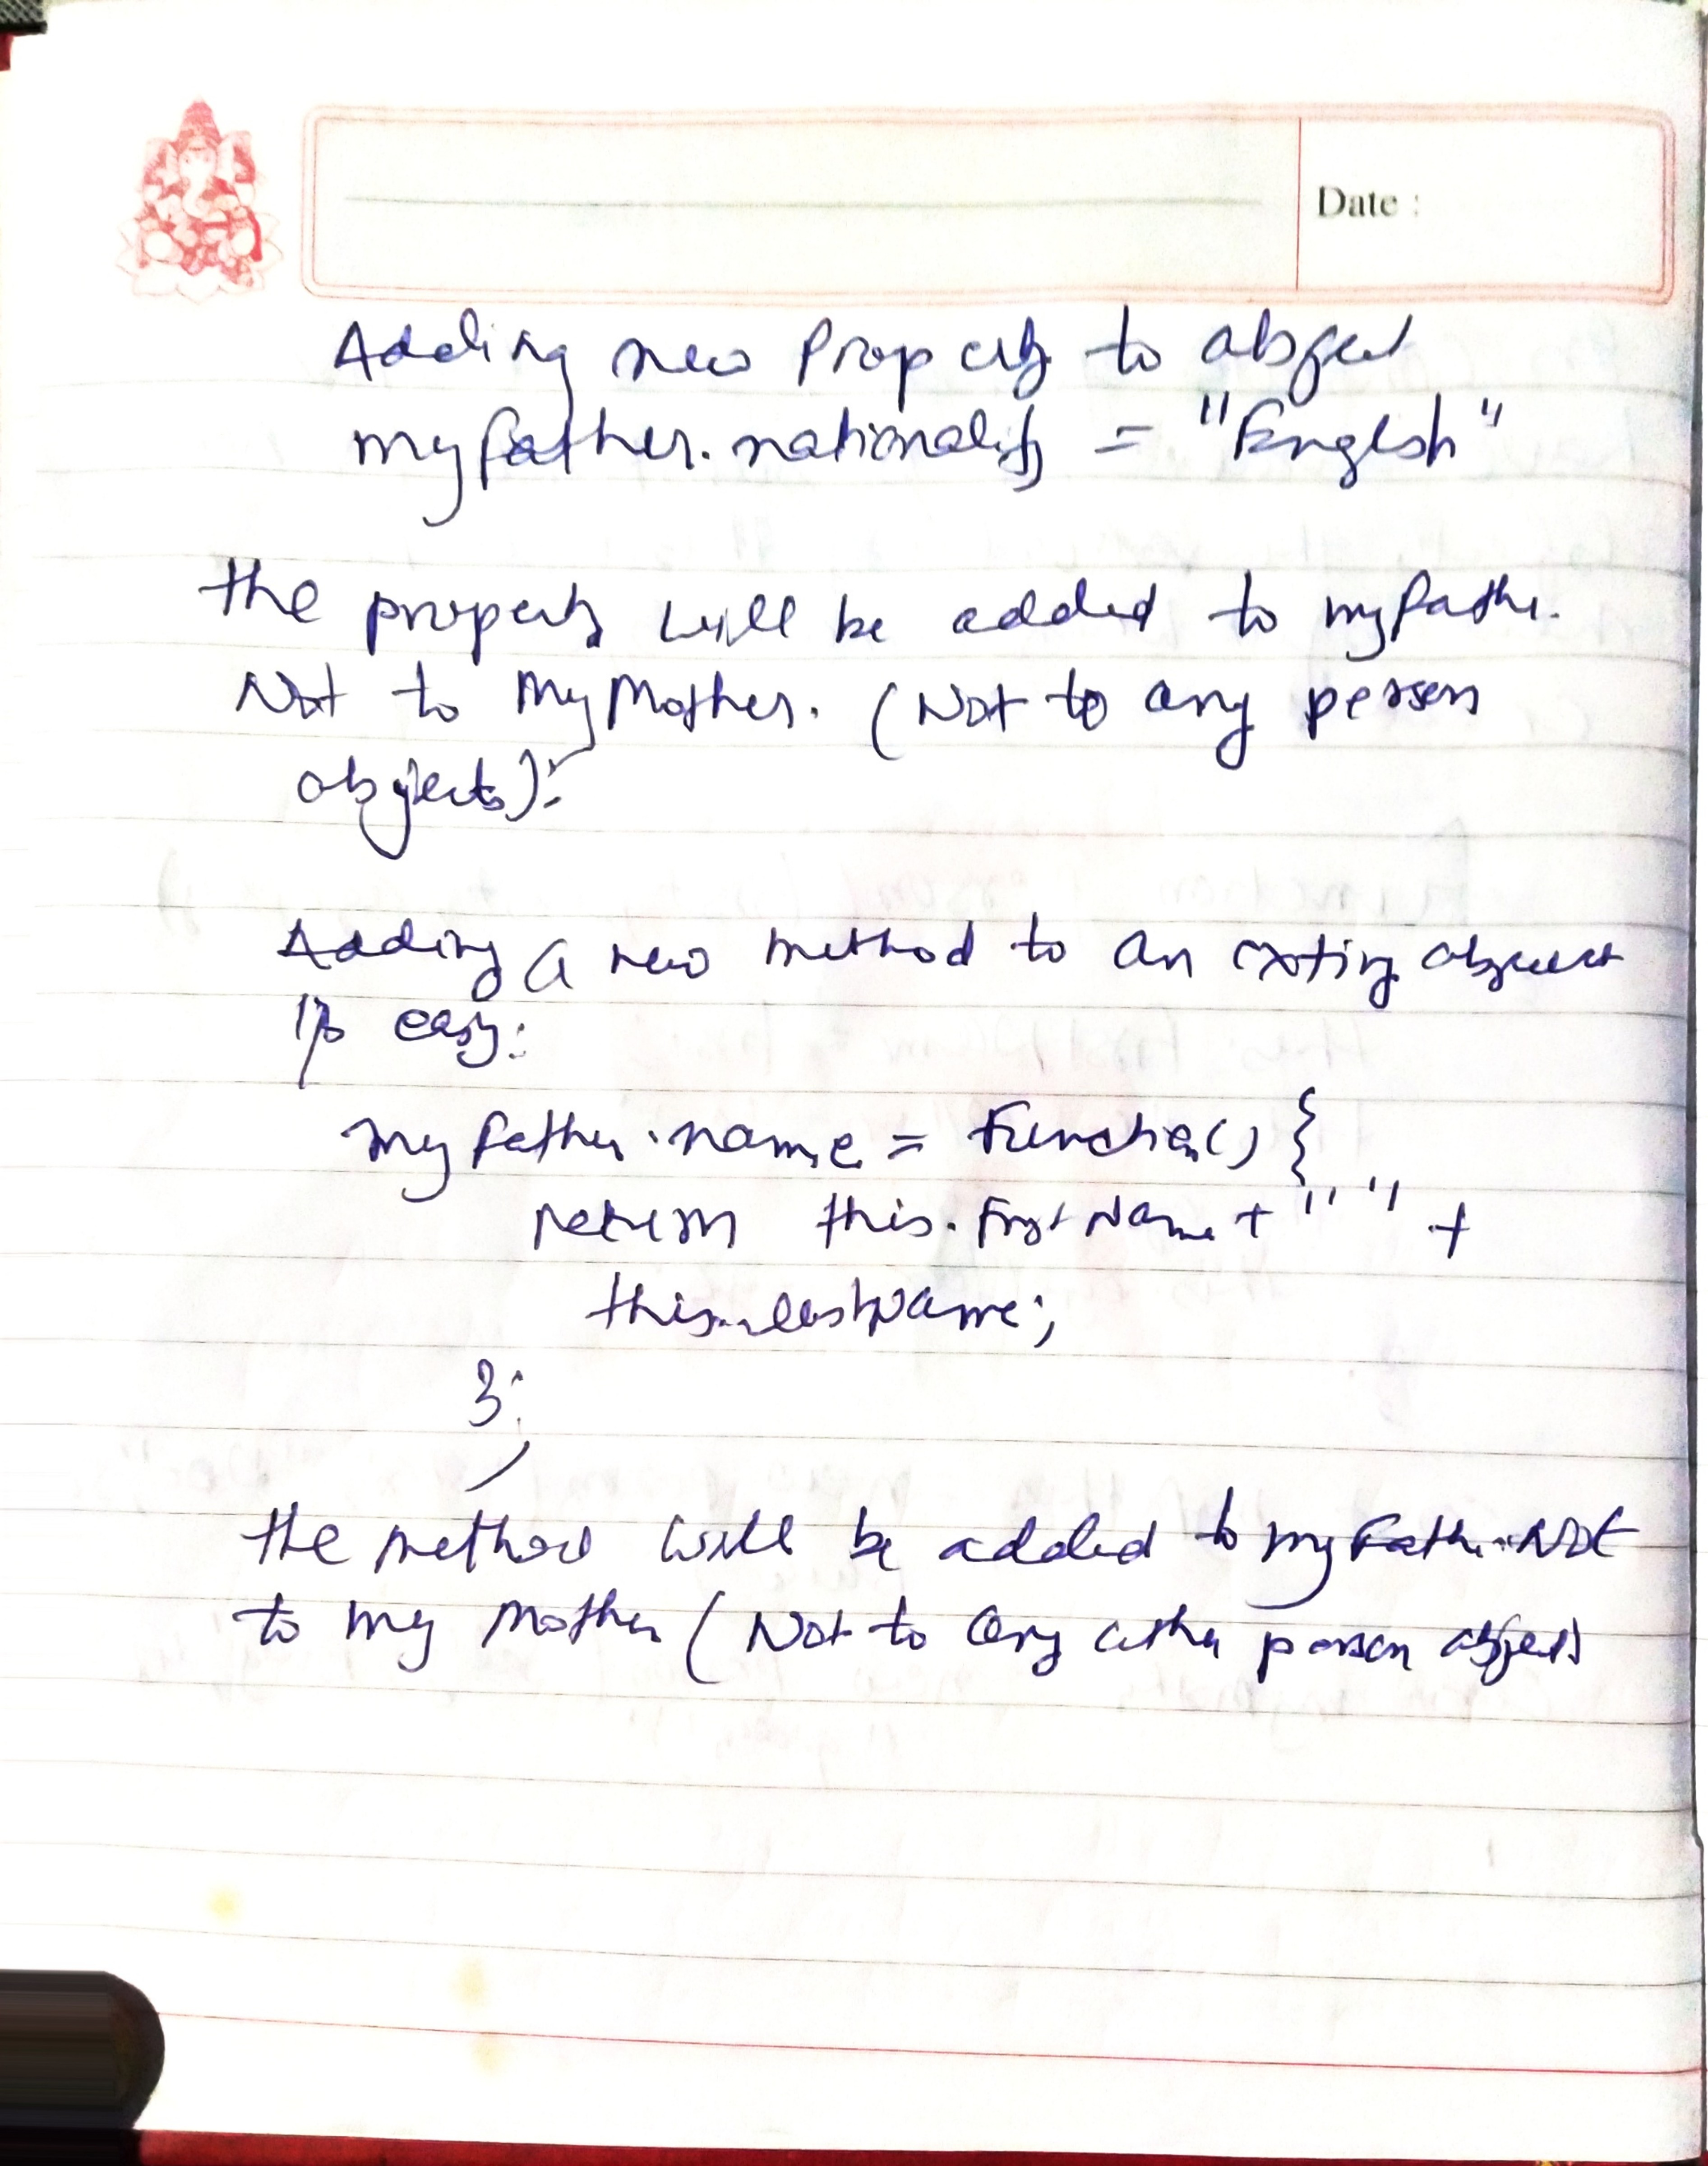 Date :
Adding new Property to object
myfather.nationality = "English"
the property will be added to myfather.
Not to MyMother. (Not to any person
objects):
Adding a new method to an existing object
is easy:
myfather.name = function() {
return this.firstName + " " +
this.lastName;
};
the method will be added to myfather. Not
to my mother (Not to any other person objects)